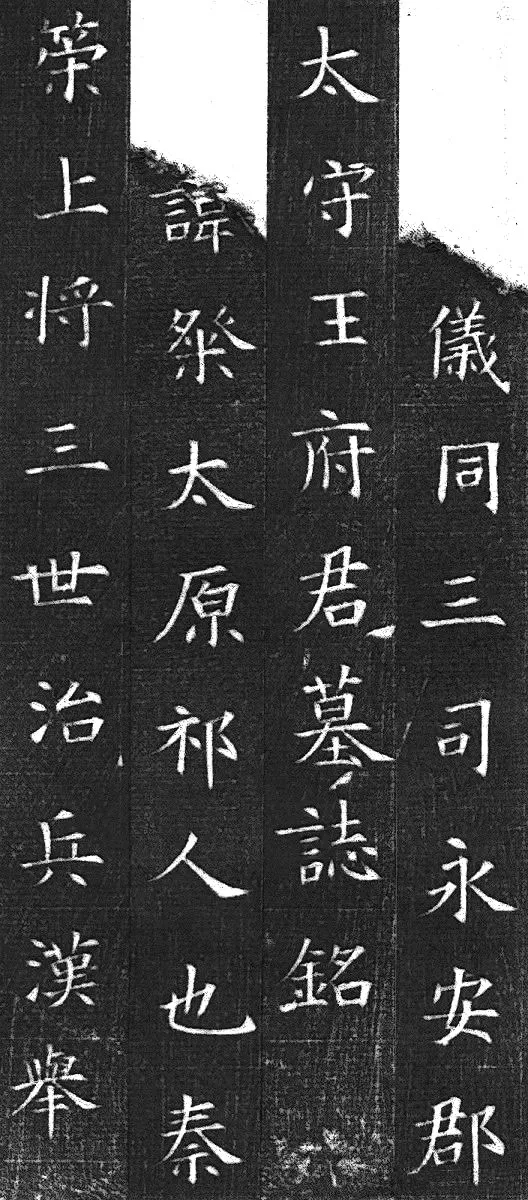 儀同三司永安郡
太守王府君墓誌銘
諱粲太原祁人也秦
策上将三世治兵漢舉